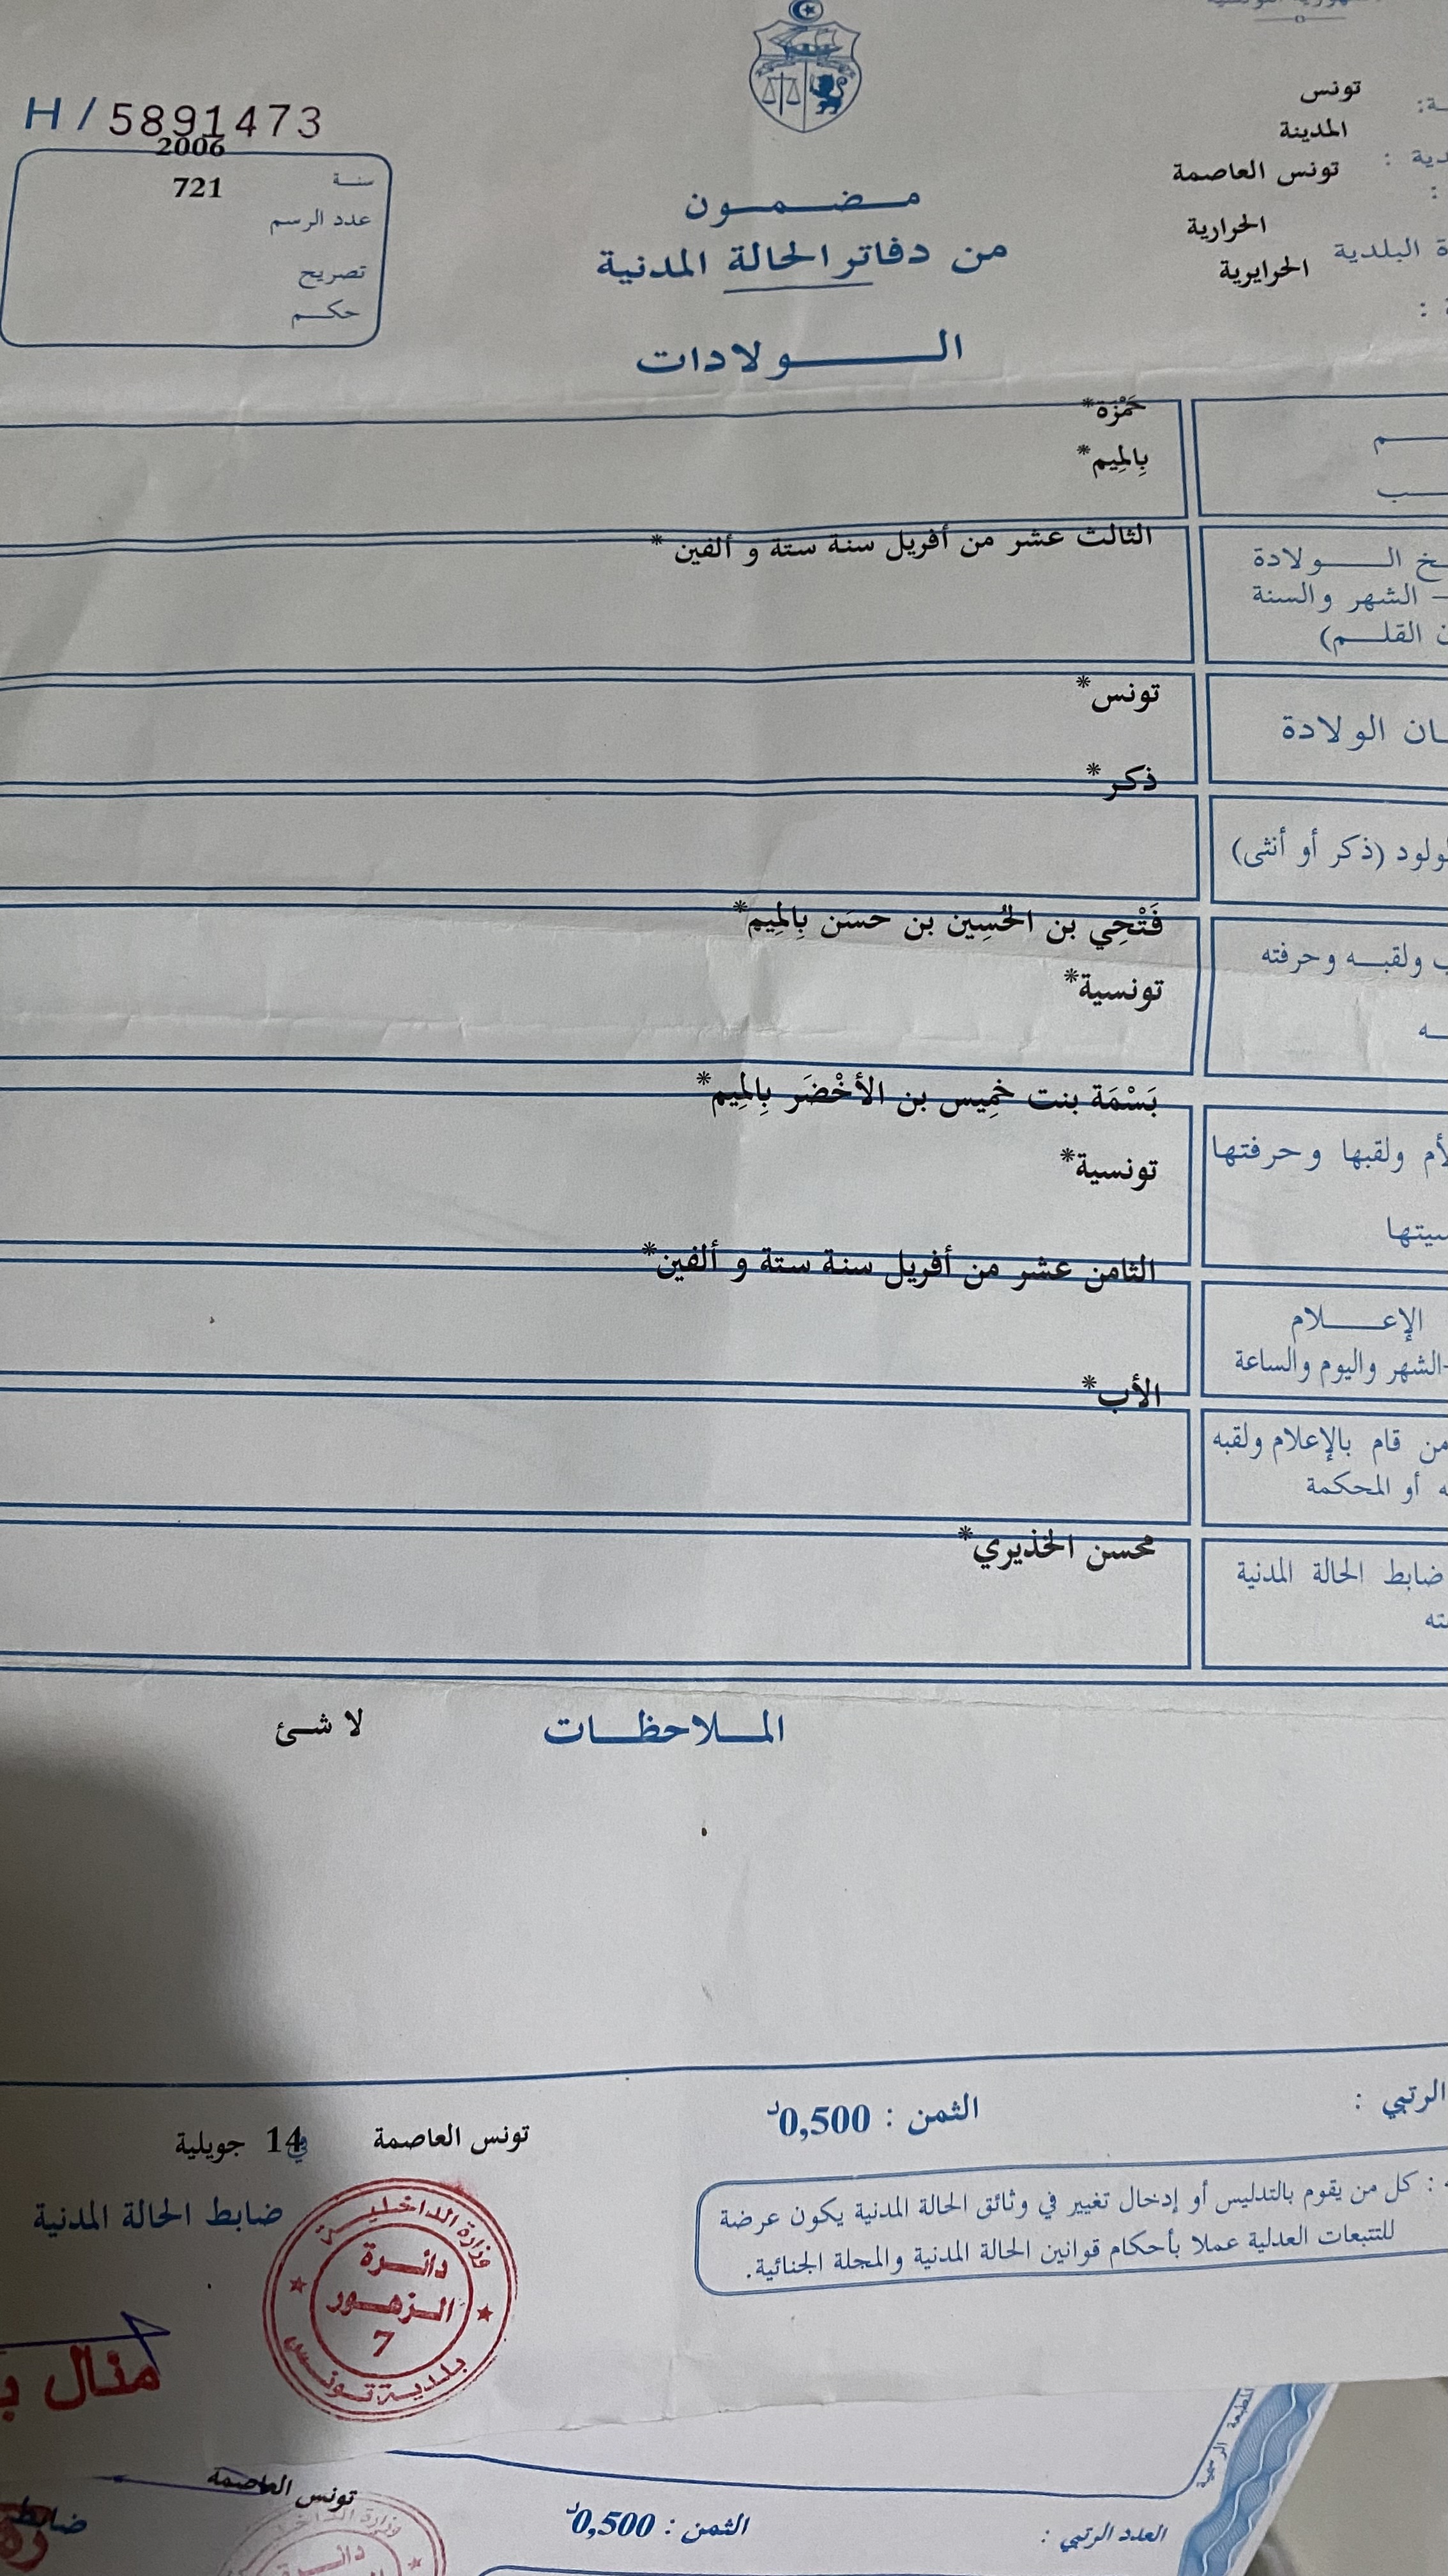 H / 5891473
2006
سنة
721
عدد الرسم
تصريح
حكم
تونس
المدينة
تونس العاصمة
الحرارية
البلدية
الحرايرية
مضمون
من دفاتر الحالة المدنية
الولادات
حَمْزَة*
بِالمِيم*
الثالث عشر من أفريل سنة ستة و ألفين *
الولادة
الشهر والسنة
القلم)
تونس*
الولادة
ذكر*
(ذكر أو أنثى)
فَتْحِي بن الحُسِين بن حسَن بِالمِيم*
ولقبه وحرفته
تونسية*
بَسْمَة بنت خمِيس بن الأخْضَر بِالمِيم*
ولقبها وحرفتها
تونسية*
الثامن عشر من أفريل سنة ستة و ألفين*
الإعلام
الشهر واليوم والساعة
الأب*
من قام بالإعلام ولقبه
أو المحكمة
محسن الخذيري*
ضابط الحالة المدنية
الملاحظات
لا شئ
الرتبي :
الثمن : 0,500د
تونس العاصمة
في 14 جويلية
ضابط الحالة المدنية
: كل من يقوم بالتدليس أو إدخال تغيير في وثائق الحالة المدنية يكون عرضة
للتتبعات العدلية عملا بأحكام قوانين الحالة المدنية والمجلة الجنائية.
وزارة الداخلية
دائرة
الزهور
7
بلدية تونس
منال
تونس العاصمة
الثمن : 0,500د
العدد الرتبي :
وزارة الداخلية
دائرة